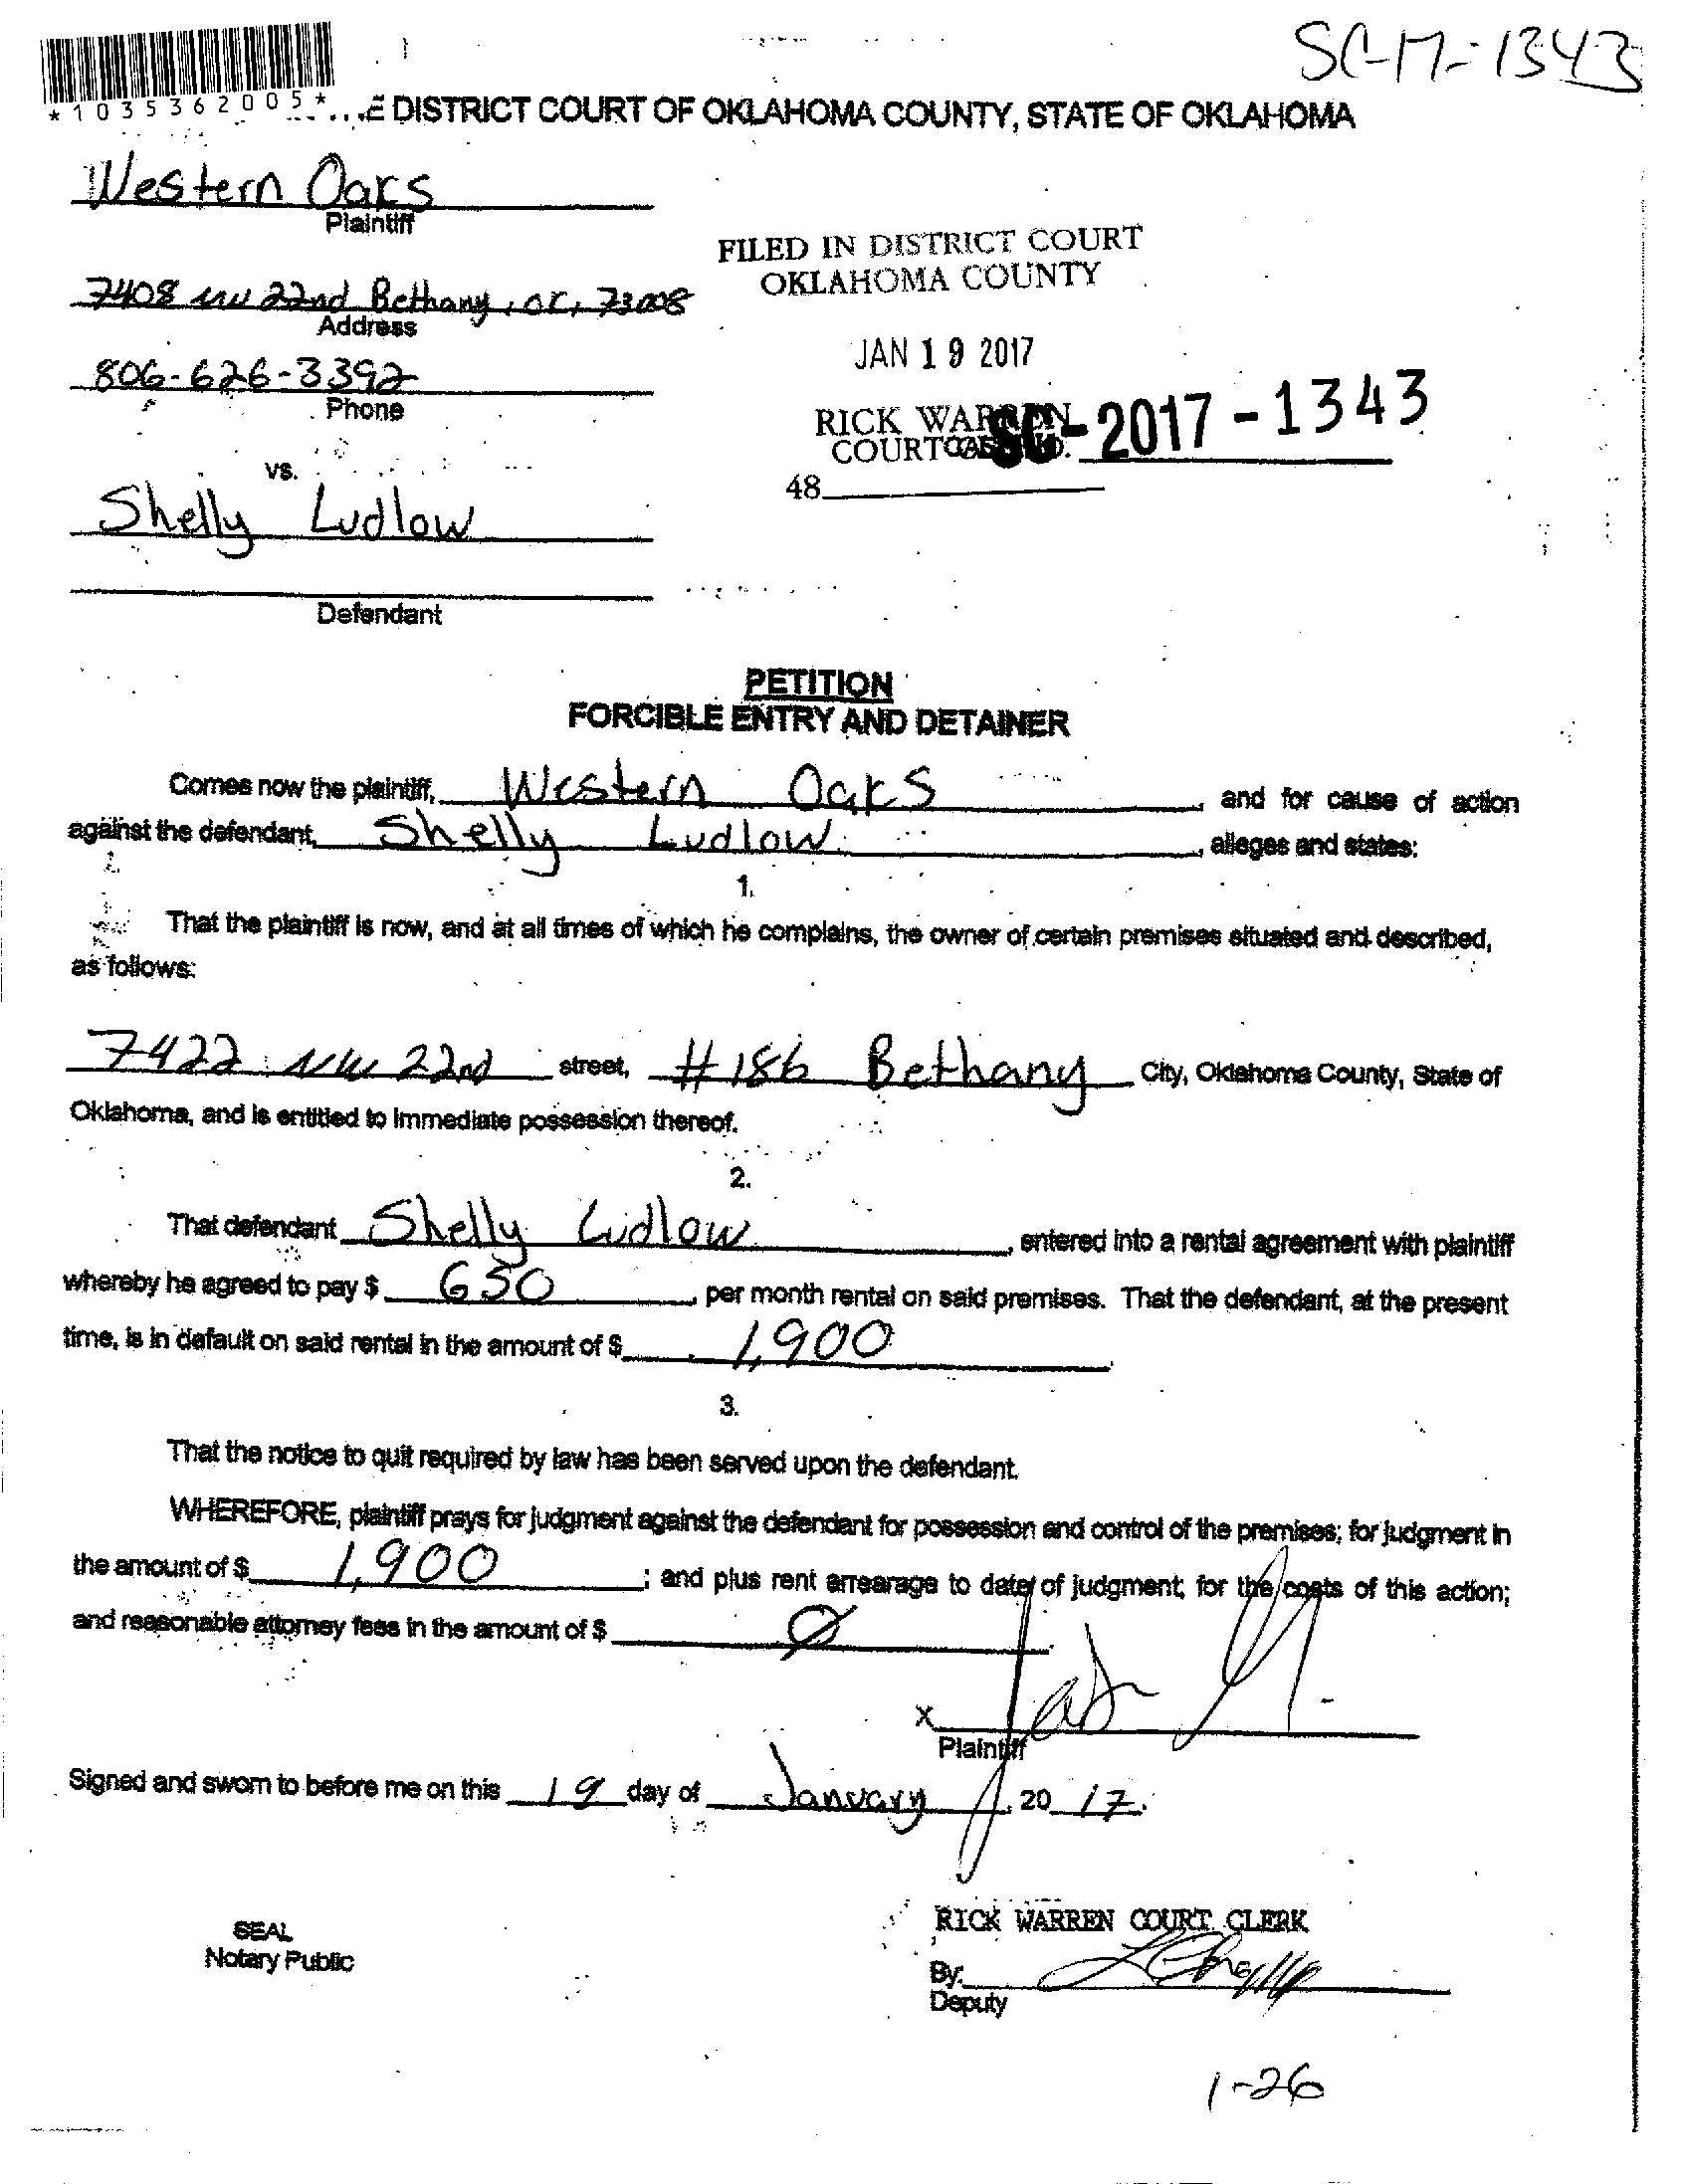 SC-17-1343
*1035362005*
E DISTRICT COURT OF OKLAHOMA COUNTY, STATE OF OKLAHOMA
Western Oaks
Plaintiff
FILED IN DISTRICT COURT
OKLAHOMA COUNTY
7408 NW 22nd Bethany, OK, 73008
Address
JAN 19 2017
806-626-3392
Phone
RICK WARREN
COURT
SC-2017-1343
48
vs.
Shelly Ludlow
Defendant
PETITION
FORCIBLE ENTRY AND DETAINER
Comes now the plaintiff, Western Oaks, and for cause of action
against the defendant, Shelly Ludlow, alleges and states:
1.
That the plaintiff is now, and at all times of which he complains, the owner of certain premises situated and described,
as follows:
7422 NW 22nd street, #186 Bethany City, Oklahoma County, State of
Oklahoma, and is entitled to immediate possession thereof.
2.
That defendant Shelly Ludlow, entered into a rental agreement with plaintiff
whereby he agreed to pay $ 650, per month rental on said premises. That the defendant, at the present
time, is in default on said rental in the amount of $ 1,900.
3.
That the notice to quit required by law has been served upon the defendant.
WHEREFORE, plaintiff prays for judgment against the defendant for possession and control of the premises; for judgment in
the amount of $ 1,900; and plus rent arrearage to date of judgment; for the costs of this action;
and reasonable attorney fees in the amount of $ Ø
X
Plaintiff
Signed and sworn to before me on this 19 day of January, 20 17.
RICK WARREN COURT CLERK
SEAL
Notary Public
By:
Deputy
1-26